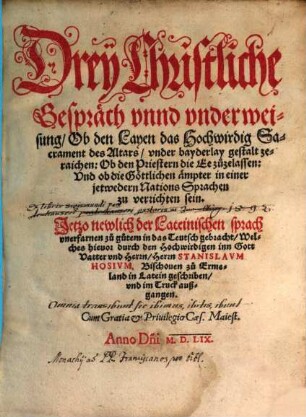 Drey Christliche
Gespräch vnnd vnderwei-
sung/ Ob den Layen das Hochwirdig Sa-
crament des Altars/ vnder bayderlay gestalt ze-
raichen: Ob den Priestern die Ee zůzelassen:
Vnd ob die Göttlichen ämpter in einer
jetwedern Nations Sprachen
zu verrichten sein.
Jetzo newlich der Lateinischen sprach
vnerfarnen zů gůtem in das Teutsch gebracht/ Wel-
ches hieuor durch den Hochwirdigen inn Gott
Vatter vnd Herrn/ Herrn STANISLAVM
HOSIVM, Bischouen zů Erma-
land in Latein geschriben/
vnd im Truck auß-
gangen.
Omnia transibunt sic ibimus, ibitis, ibunt
Cum Gratia & Priuilegio Cæs. Maiest.
Anno Dñi M. D. LIX.
Monachij ad PP. Franciscanos, pro bibl.